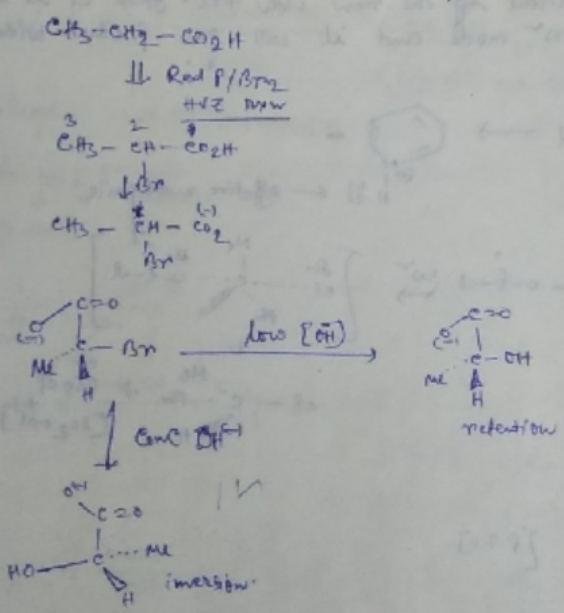 CH3-CH2-CO2H
Red P/Br2
HVZ rxn
3 2 1
CH3-CH-CO2H
Br
CH3-CH-CO2(-)
Br
C=O
O(-)
Me C-Br
H
low [OH]
C=O
O(-)
Me C-OH
H
retention
Conc OH(-)
OH
C=O
HO-C Me
H
inversion